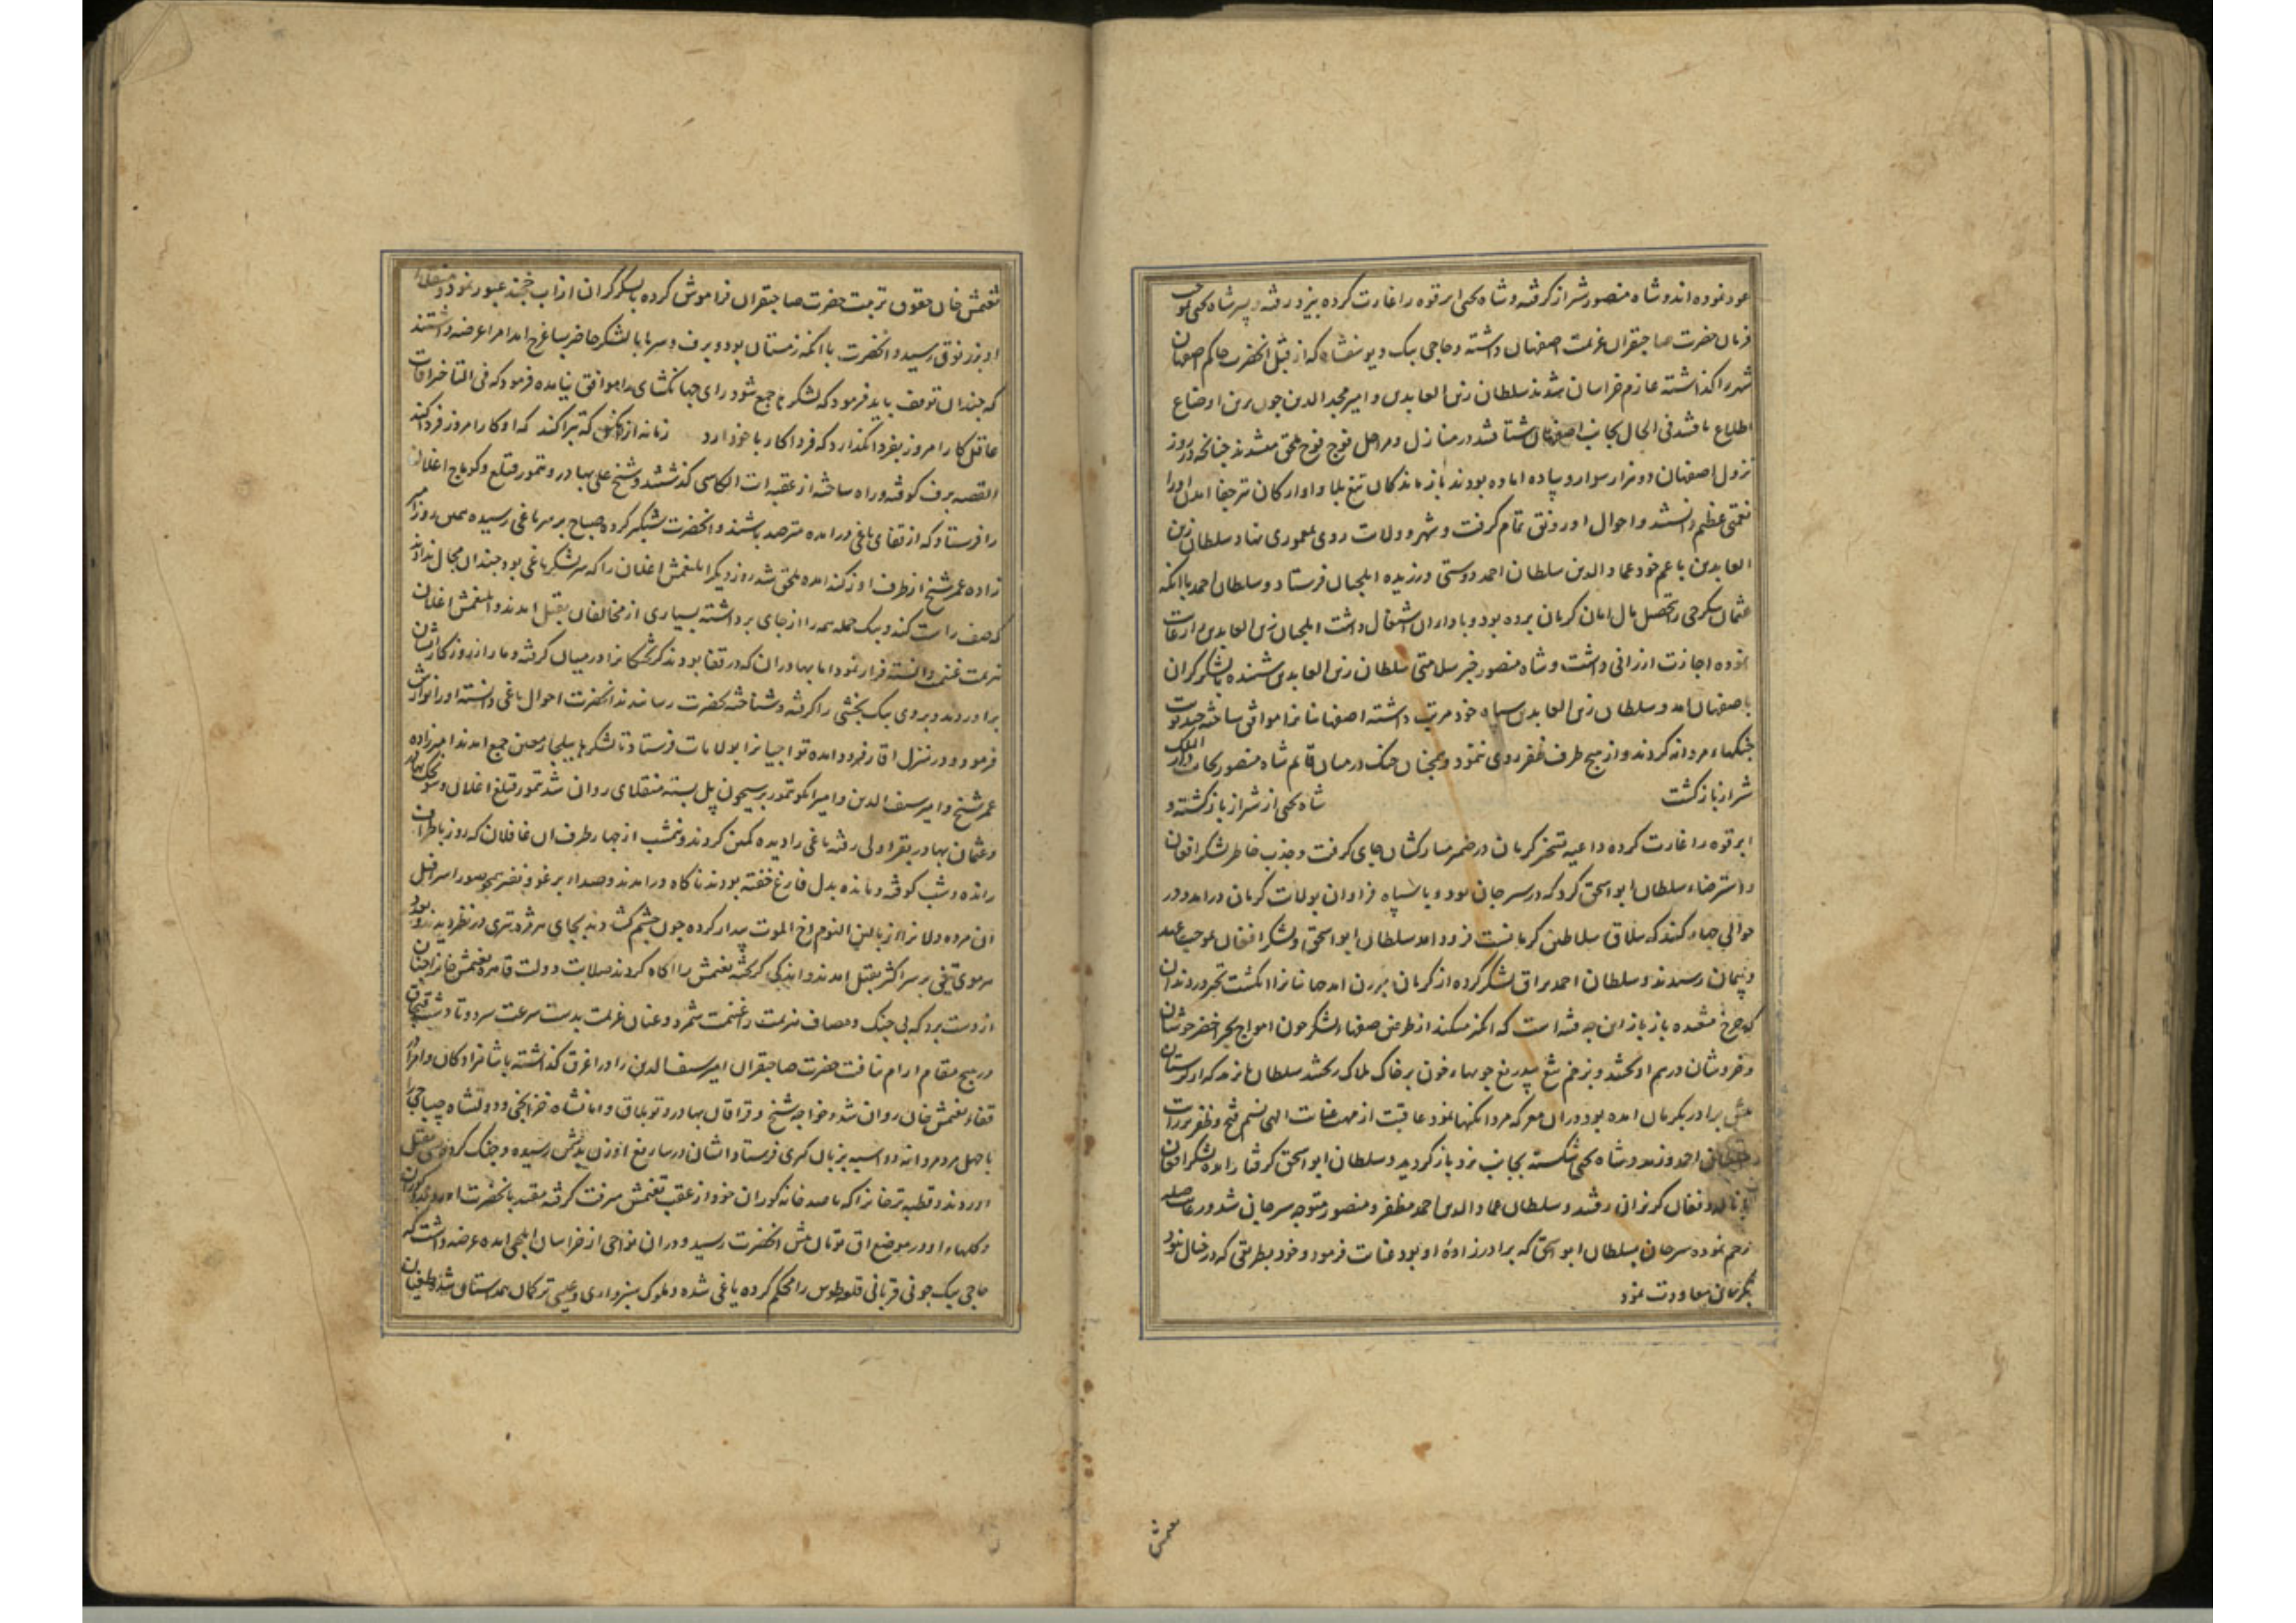 عود نموده اند و شاه منصور شیراز گرفته و شاه یحیی ابرقوه را غارت کرده بیزد رفته و پسر شاه یحیی
فرمان حضرت صاحبقران عزیمت اصفهان داشته و حاجی بیک و یوسفشاه که از قبل انحضرت حاکم اصفهان
شهر را گذاشته عازم خراسان شدند سلطان زین العابدین و امیر مجد الدین چون برین اوضاع
اطلاع یافتند فی الحال بجانب اصفهان شتافتند در منازل و مراحل فوج فوج ملحق میشدند چنانچه در روز
نزول اصفهان دو هزار سوار و پیاده اماده بودند بازماندکان تیغ بلا و اوارکان
نعمتی عظیم دانستند و احوال او رونق تمام گرفت و شهر و ولایت روی بمعموری نهاد و سلطان زین
العابدین با عم خود عماد الدین سلطان احمد دوستی ورزیده ایلچیان فرستاد و سلطان احمد با انکه
عثمان بتحصیل مال امان کرمان برده بود و اشتغال داشت ایلچیان زین العابدین را رعایت
نموده اجازت ارزانی داشت و شاه منصور خبر سلامتی سلطان زین العابدین شنیده با لشکر گران
باصفهان امد و سلطان زین العابدین سپاه خود مرتب داشته اصفهانیانرا موافق ساخته چند نوبت
جنگهاء مردانه کردند و از هیچ طرف ظفر روی ننمود و همچنان جنک در میان قایم شاه منصور بجانب دار الملک
شیراز باز گشت شاه یحیی از شیراز باز گشته و
ابرقوه را غارت کرده داعیه تسخیر کرمان در ضمیر مبارکشان جای گرفت و جذب خاطر لشکر افغان
و استرضاء سلطان ابو اسحق کرد که در سیرجان بود و با سپاه فراوان بولایت کرمان در امد و در
حوالی که ییلاق سلاطین کرمانست فرود امد سلطان ابو اسحق و لشکر افغان بموجب عهد
و پیمان رسیدند و سلطان احمد یراق لشکر کرده از کرمان بیرون امد
که چرخ شعبده باز باز این چه فتنه است که انگیز میکند از طرفین صفهاء لشکر چون امواج بحر اخضر جوشان
و خروشان درهم اویختند و بزخم تیغ بیدریغ جویهاء خون بر خاک هلاک ریختند سلطان
برادر بکرمان امده بود در ان معرکه مردانکیها نمود عاقبت از مهب عنایت الهی نسیم فتح و ظفر بر رایت
سلطان احمد وزید و شاه یحیی شکسته بجانب یزد باز کردید و سلطان ابو اسحق گرفتار امده لشکر افغان
با ناله و فغان گریزان رفتند و سلطان عماد الدین احمد مظفر و منصور متوجه سیرجان شد و
رحم نموده سیرجان بسلطان ابو اسحق که برادرزاده او بود عنایت فرمود و خود بطریقی که در خیال بود
بکرمان معاودت نمود
تغتمش
تغتمش خان حقوق تربیت حضرت صاحبقران فراموش کرده با لشکر گران از اب خجند عبور نمود و
رسید و انحضرت با انکه زمستان بود و برف و سرما با لشکر حاضر بساغرج امد امرا عرضه داشتند
که چندان توقف باید فرمود که لشکرها جمع شود رای جهانکشای را موافق نیامده فرمود که فی التاخیر افات
عاقل کار امروز بفردا نگذارد که فردا کار با خود ارد زمانه از انکس تبرا کند که او کار امروز فردا کند
القصه برف کوفته و راه ساخته از عقبات گذشتند و شیخ علی بهادر و تمور قتلغ و کونجه اغلان
را فرستاد که از قفای یاغی در امده مترصد باشند و انحضرت شبگیر کرده صباح بر سر یاغی رسیده همین روز امیر
زاده عمر شیخ از طرف اوزکند امده ملحق شد روز دیگر ایلغمش اغلان را که سر لشکر یاغی بود چندان مجال ندادند
که صف راست کند و بیک حمله همه را از جای برداشته بسیاری از مخالفان بقتل امدند و ایلغمش اغلان
هزیمت غنیمت دانسته فرار نمود اما بهادران که در قفا بودند گریختگانرا در میان گرفته دمار از روزگار ایشان
براوردند و یروی بیک بخشی را گرفته و شناخته بحضرت رسانیدند انحضرت احوال یاغی دانسته او را نوازش
فرمود و در منزل اقار فرود امده تواچیانرا بولایات فرستاد تا لشکرها ببیلجار معین جمع امدند امیرزاده
عمر شیخ و امیر سیف الدین و امیر ایکو تمور بر سیحون پل بسته منقلای روان شد تمور قتلغ اغلان و سونجک بهادر
و عثمان بهادر بقراولی رفته یاغی را دیده کمین کردند و نیمشب از چهار طرف ان غافلان که روز
رانده و شب کوفته و مانده بدل فارغ خفته بودند ناکاه در امدند و صداء برغو و نفیر همچو صور اسرافیل
ان مرده دلانرا از بالین النوم اخ الموت بیدار کرده چون چشم گشادند بجای هر مژه تیری در نظر دیدند
هر موی تیغی بر سر اکثر بقتل امدند و اندکی گریخته تغتمش را اگاه کردند صلابت دولت قاهره تغتمش خانرا چنان
از دست برد که بی جنک و مصاف هزیمت را غنیمت شمرد و عنان عزیمت بدست سرعت سپرد و تا دشت قبچاق
در هیچ مقام ارام نیافت حضرت صاحبقران امیر سیف الدین را در اغرق گذاشته با شاهزادگان و امرا در
قفاء تغتمش خان روان شد و خواجه شیخ و قرا قان بهادر و توبلاق و امانشاه خزانچی و دولتشاه جیباجی را
با چهل مرد مردانه دو اسپه بزبان گیری فرستاد ایشان در ساریغ اوزن بدیشان رسیده و جنک کرده بقتل
اوردند و قطبه ترخانرا که با صد خانه کوران خود از عقب تغتمش میرفت گرفته مقید بانحضرت اوردند
و کلهاء او در موضع اق تومان پیش انحضرت رسید و در ان نواحی از خراسان ایلچی امده عرضه داشت که
حاجی بیک جونی قربانی قلعه طوس را محکم کرده یاغی شده و ملوک سبزواری و ترکمان همداستان شده